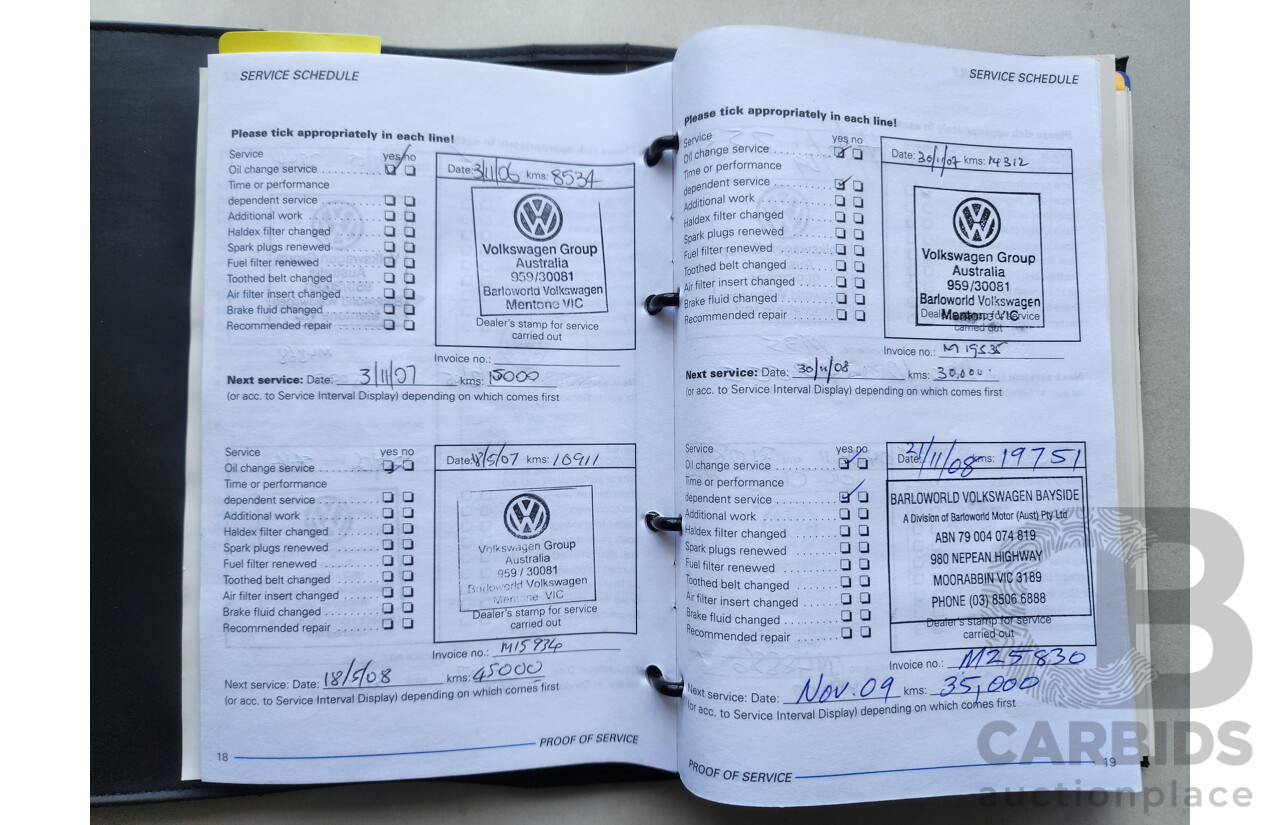 SERVICE SCHEDULE
Please tick appropriately in each line!
Service yes no
Oil change service
Time or performance
dependent service
Additional work
Haldex filter changed
Spark plugs renewed
Fuel filter renewed
Toothed belt changed
Air filter insert changed
Brake fluid changed
Recommended repair
Date: 3/11/06 kms: 8534
Volkswagen Group
Australia
959/30081
Barloworld Volkswagen
Mentone VIC
Dealer's stamp for service
carried out
Invoice no.:
Next service: Date: 3/11/07 kms: 15000
(or acc. to Service Interval Display) depending on which comes first
Service yes no
Oil change service
Time or performance
dependent service
Additional work
Haldex filter changed
Spark plugs renewed
Fuel filter renewed
Toothed belt changed
Air filter insert changed
Brake fluid changed
Recommended repair
Date: 18/5/07 kms: 10911
Volkswagen Group
Australia
959 / 30081
Barloworld Volkswagen
Mentone VIC
Dealer's stamp for service
carried out
Invoice no.: M15934
Next service: Date: 18/5/08 kms: 45000
(or acc. to Service Interval Display) depending on which comes first
18 PROOF OF SERVICE
SERVICE SCHEDULE
Please tick appropriately in each line!
Service yes no
Oil change service
Time or performance
dependent service
Additional work
Haldex filter changed
Spark plugs renewed
Fuel filter renewed
Toothed belt changed
Air filter insert changed
Brake fluid changed
Recommended repair
Date: 30/11/07 kms: 14312
Volkswagen Group
Australia
959/30081
Barloworld Volkswagen
Mentone VIC
Dealer's stamp for service
carried out
Invoice no.: M19535
Next service: Date: 30/11/08 kms: 30,000
(or acc. to Service Interval Display) depending on which comes first
Service yes no
Oil change service
Time or performance
dependent service
Additional work
Haldex filter changed
Spark plugs renewed
Fuel filter renewed
Toothed belt changed
Air filter insert changed
Brake fluid changed
Recommended repair
Date: 21/11/08 kms: 19751
BARLOWORLD VOLKSWAGEN BAYSIDE
A Division of Barloworld Motor (Aust) Pty Ltd
ABN 79 004 074 819
980 NEPEAN HIGHWAY
MOORABBIN VIC 3189
PHONE (03) 8506 6888
Dealer's stamp for service
carried out
Invoice no.: M25830
Next service: Date: Nov. 09 kms: 35,000
(or acc. to Service Interval Display) depending on which comes first
PROOF OF SERVICE 19
CARBIDS
auctionplace